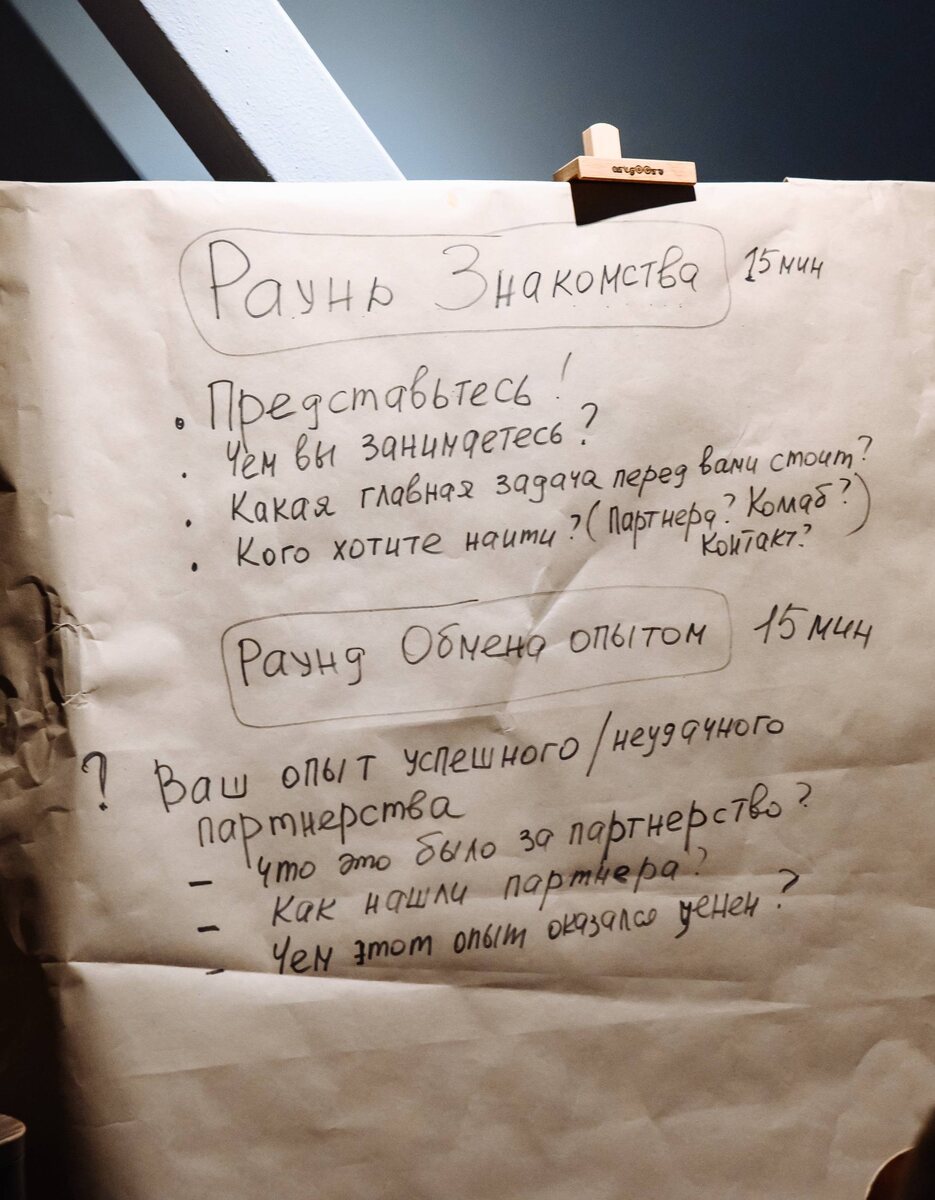 Раунд Знакомства 15 мин
• Представьтесь!
• Чем вы занимаетесь?
• Какая главная задача перед вами стоит?
• Кого хотите наити? (Партнера? Коллаб?)
Контакт?
Раунд Обмена опытом 15 мин
? Ваш опыт успешного/неудачного
партнерства
- что это было за партнерство?
- Как нашли партнера?
- Чем этот опыт оказался ценен?